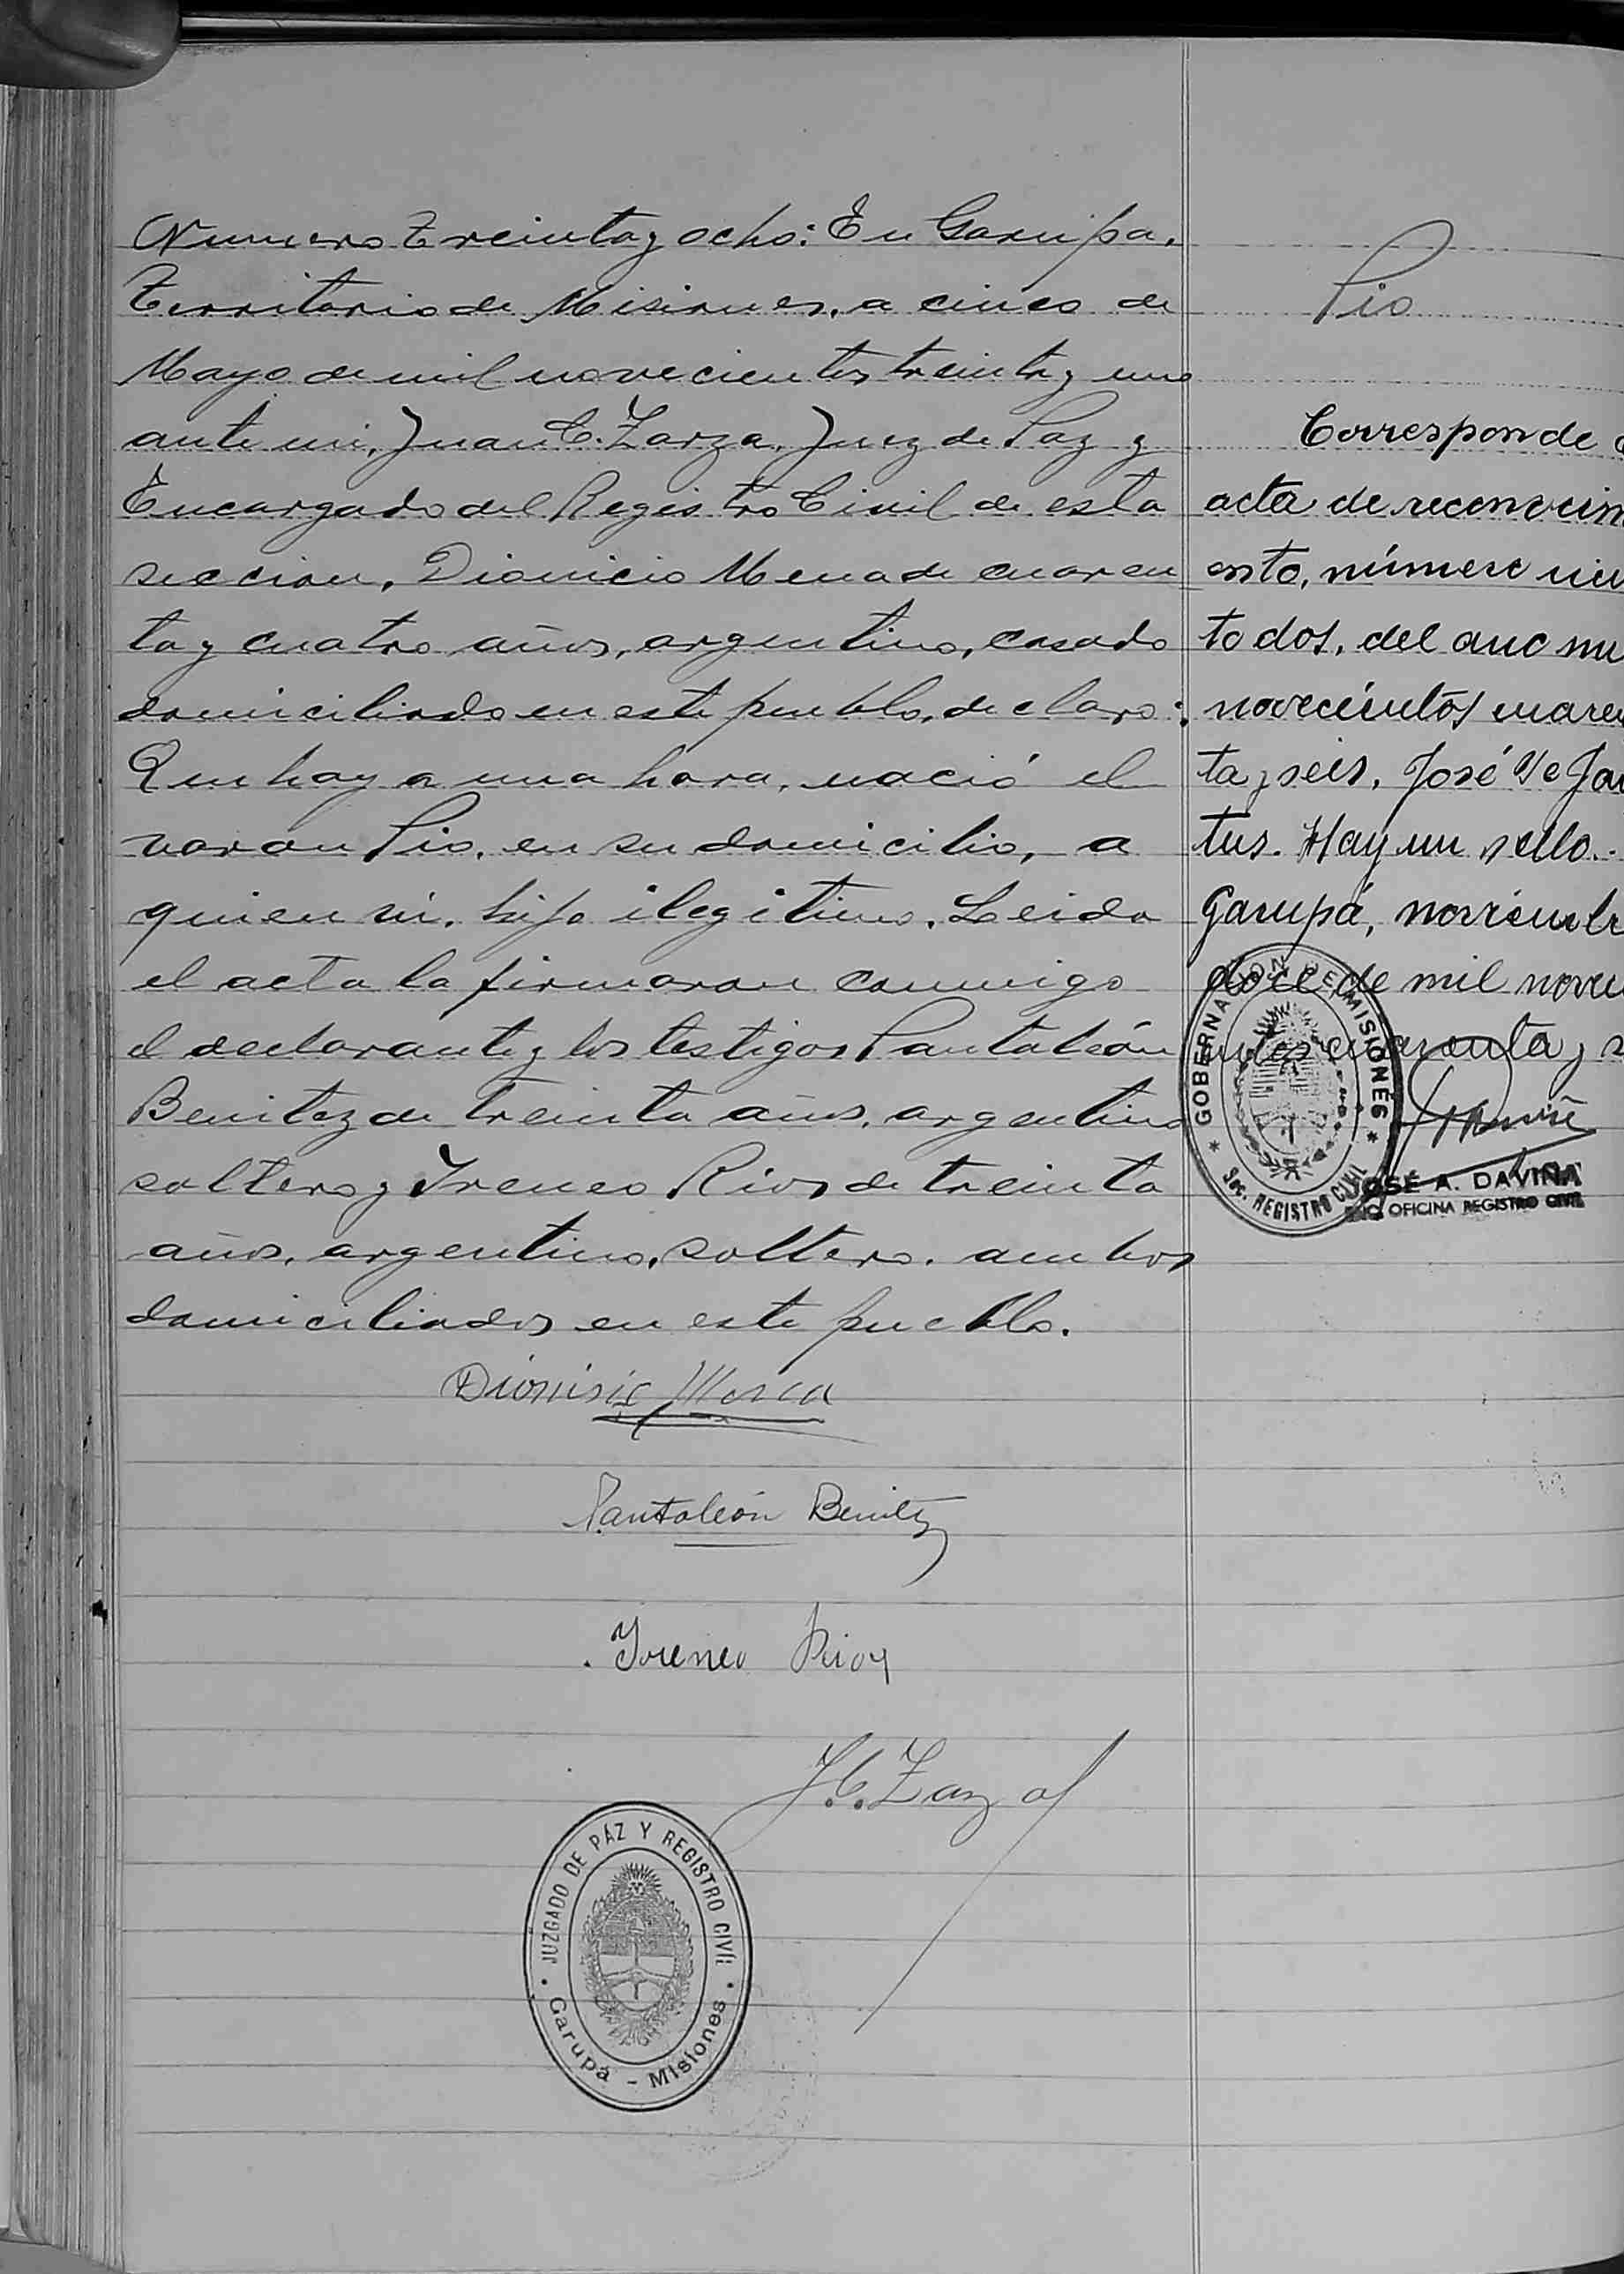 Numero Treinta y ocho: En Garupa,
Territorio de Misiones, a cinco de
Mayo de mil novecientos treinta y uno
ante mi, Juan C. Zarza, Juez de Paz y
Encargado del Registro Civil de esta
seccion, Dionicio Mena de cuaren
ta y cuatro años, argentino, casado
domiciliado en este pueblo, declaro:
Que hoy a una hora, nació el
varon Pio, en su domicilio, a
quien vi, hijo ilegitimo. Leida
el acta la firmaron conmigo
el declarante y los testigos Pantaleón
Benitez de treinta años, argentino
soltero y Ireneo Rios de treinta
años, argentino, soltero, ambos
domiciliados en este pueblo.
Dionisio Mena
Pantaleón Benitez
Ireneo Rios
J.C. Zarza
JUZGADO DE PÁZ Y REGISTRO CIVIL
Garupá - Misiones
Pio
Corresponde
acta de reconocim
ento, número
to dos, del año
novecientos cuaren
ta y seis, José
tus. Hay un sello.
Garupá, noviembr
doce de mil novec
cuarenta y
GOBERNACION DE MISIONES
Sec. REGISTRO CIVIL
JOSÉ A. DAVIÑA
ENC. OFICINA REGISTRO CIVIL